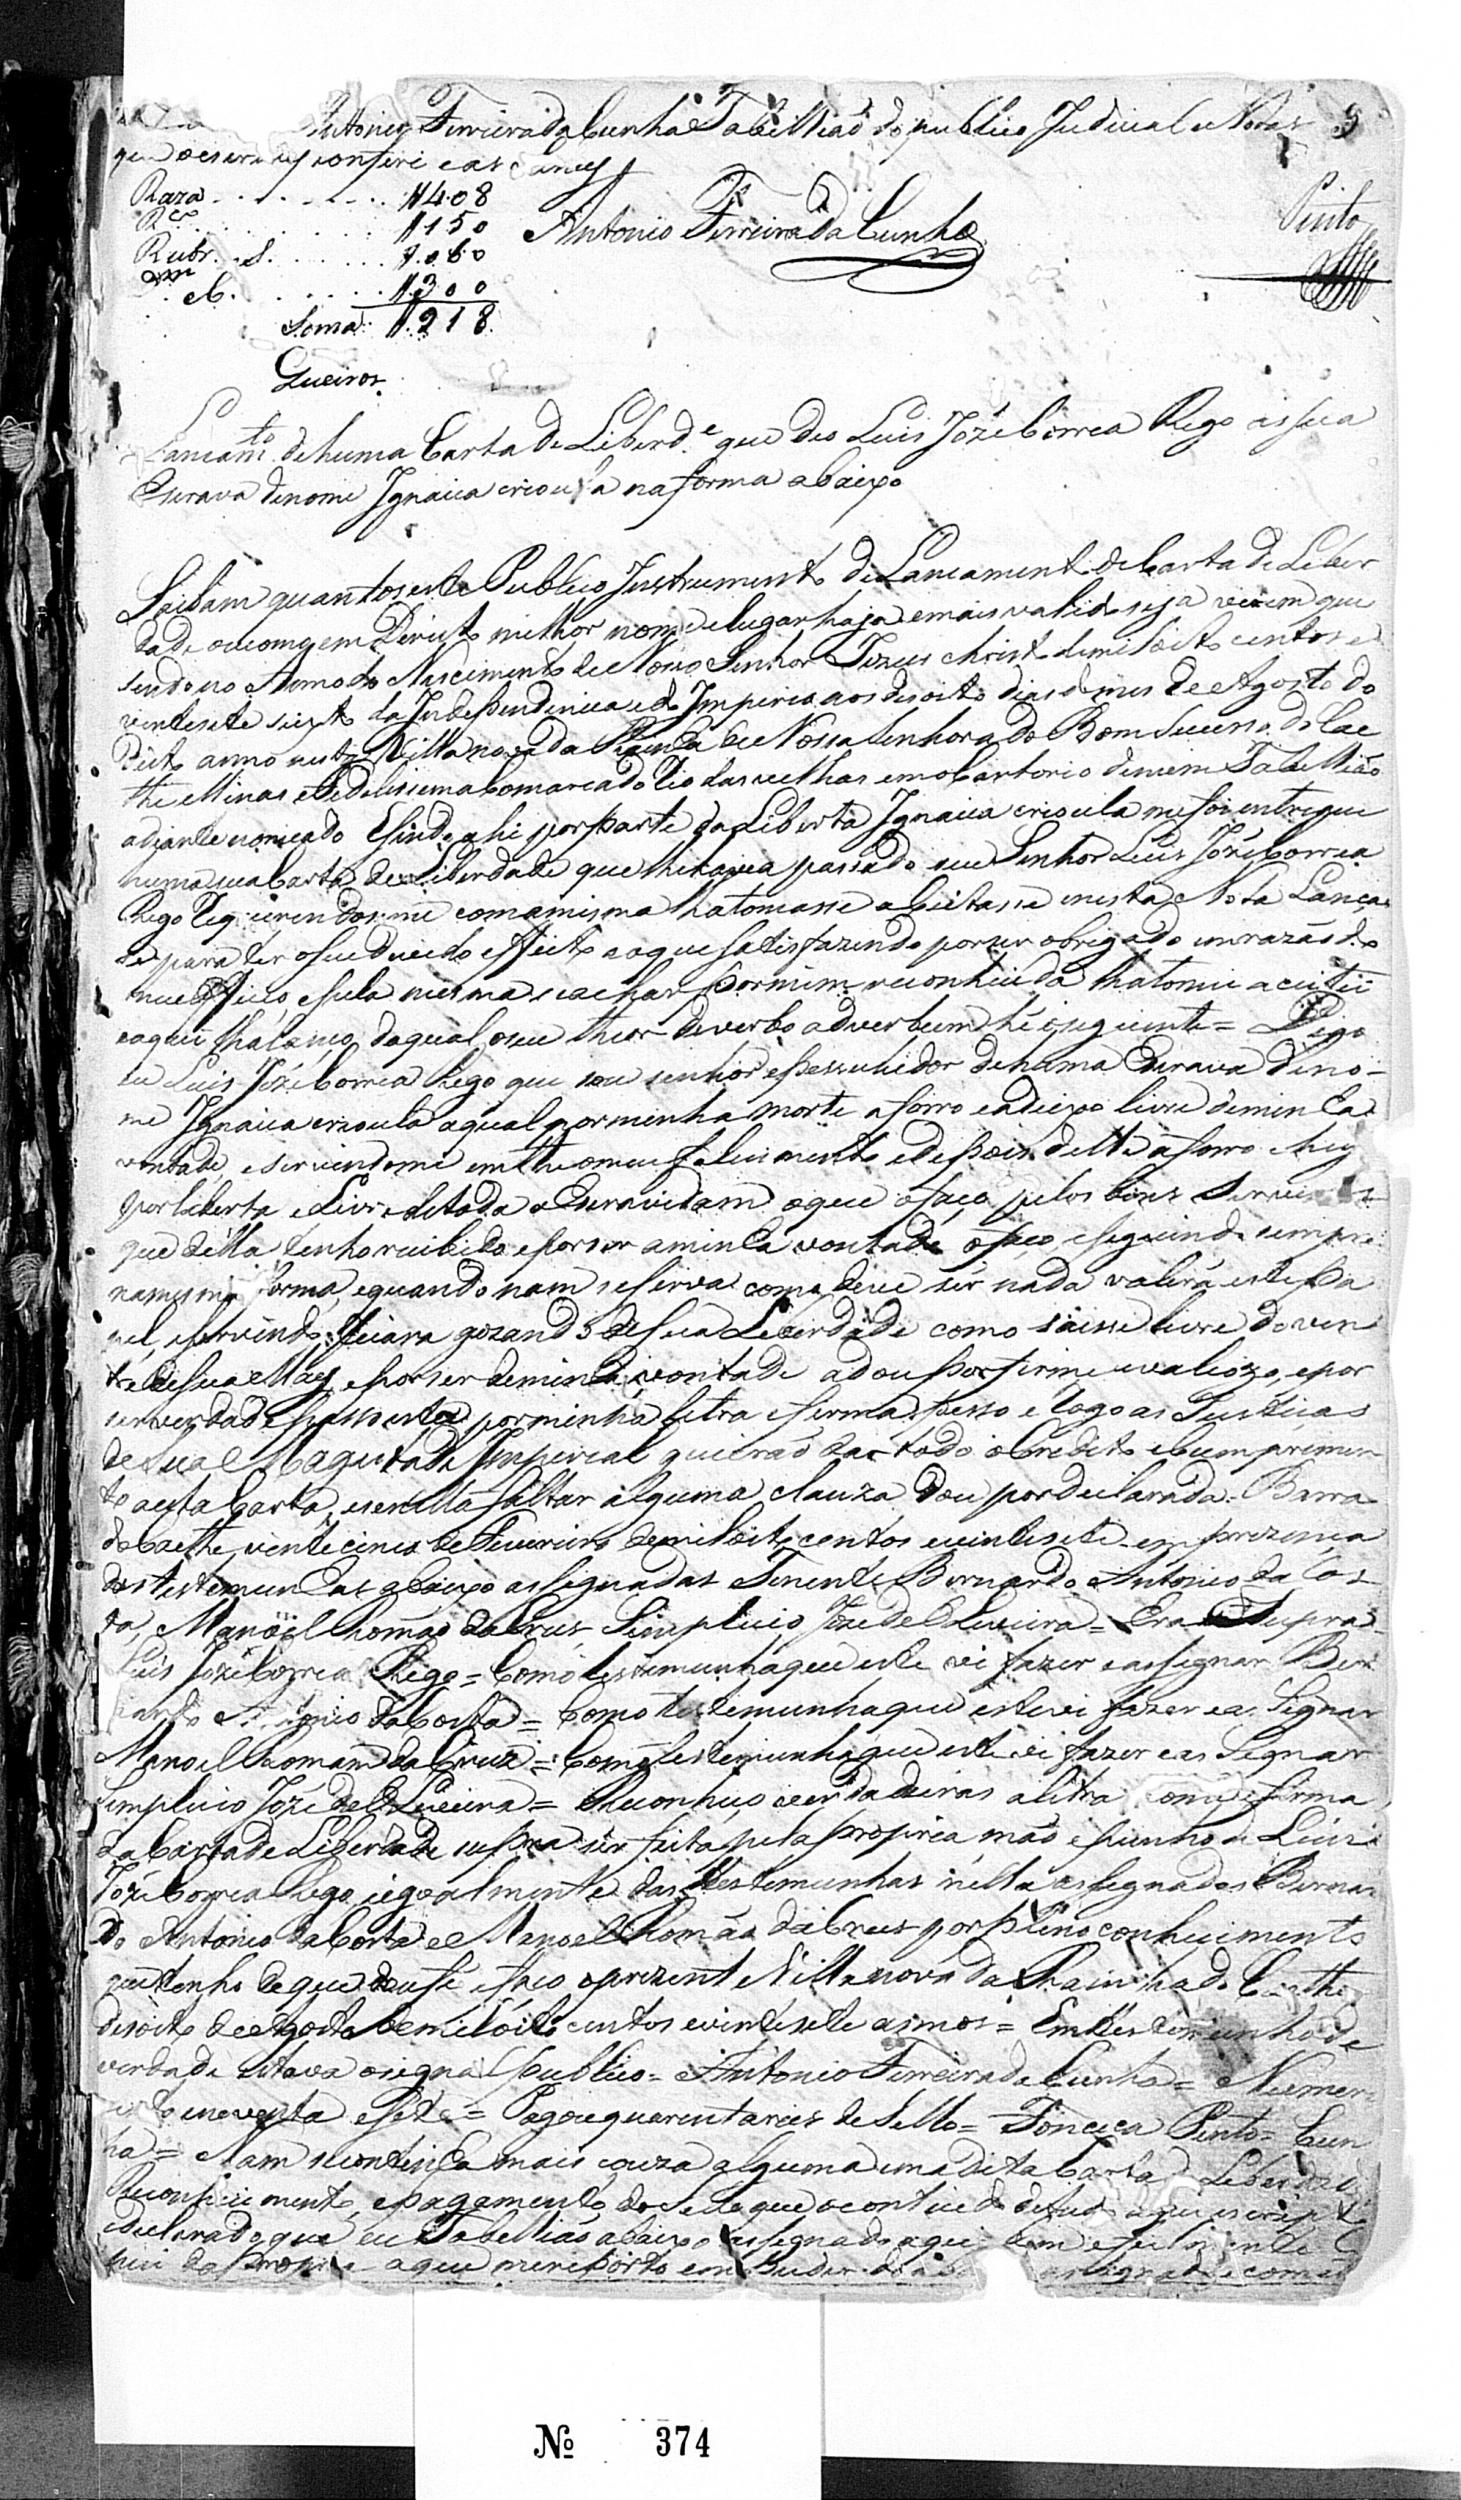 Antonio Ferreira da Cunha Tabelliaõ do publico Judicial e Notas 9
que o escrevy conferi e as
Raza 408
150 Antonio Ferreira da Cunha
Pinto
Rubr. 060
300
Soma 918
Queiros
Lancamto. de huma Carta de Liberde. que deo Luis Jozé Correa Rego a sua
Escrava de nome Ignacia crioula na forma abaixo
Saibam quantos este Publico Instrumento de Lancamento de Carta de Liber
dade ou como em Direito milhor nome e lugar haja e mais valido seja virem que
sendo no Anno do Nascimento de Nosso Senhor Jezus christo de mil oito centos e
vinte sete sexto da Independencia e do Imperio aos desoito dias do mes de Agosto do
dito anno nesta Villa nova da Rainha de Nossa Senhora do Bom Sucesso do Cae
the Minas e Fidelissima Comarca do Rio das velhas em o Cartorio de mim Tabelliaõ
adiante nomeado e sendo ahi por parte da Liberta Ignacia crioula me foi entregue
huma sua Carta de Liberdade que lhe havia passado seu Senhor Luis Jozé Correa
Rego requerendo-me com a mesma lha tomasse e nesta Nota Lança
se para ter o seu devido effeito e o que satisfazendo por ser obrigado em razaõ do
meu officio, e pela mesma se achar por mim reconhecida lha tomei aceitei
e aqui lha lanço da qual o seu theor de verbo adverbum hé o seguinte = Digo
eu Luis Jozé Correa Rego que sou senhor e possuhidor de huma Escrava de no-
me Ignacia crioula a qual por minha morte a forro e a deixo livre de minha
vontade, e servindome em the o meu falecimento e depois delle a forro
por liberta e Livre de toda a Escravidam o que o faço pelos bons Servicos
que della tenho recibido e por ser a minha vontade o faço e seguindo sempre
na mesma forma, e quando nam se sirva como deve ser nada valerá este Pa
pel, e servindo ficara gozando de sua Liberdade como se saisse livre do ven
tre de sua May e por ser de minha vontade a dou por firme e valioza, e por
ser verdade passo esta por minha letra e firma, e pesso e rogo as Justicas
de Sua Magestade Imperial queiraõ dar todo o Credito e cumprimen
to a esta Carta, e se nella faltar alguma clauza dou por declarada. Barra
do Caethe vinte cinco de Fevereiro de mil oito centos e vinte sete em prezença
das testemunhas abaixo assignadas Tenente Bernardo Antonio da Cos-
ta, Manoel Thomáo da Crus, Simplicio Joze de Oliveira = Era Supra
Luis Jozé Correa Rego = Como testemunha que este vi fazer e assignar Ber
nardo Antonio da Costa = Como testemunha que este vi fazer e as Signar
Manoel Thomam da Cruz = Como testemunha que este vi fazer e as Signar
Simplicio Jozé de Oliveira = Reconheço verdadeiras a letra como e firma
da Carta de Liberdade supra ser feita pela propria, maõ e punho de Luis
Jozé Correa Rego e igoalmente das testemunhas nella assignadas Bernar
do Antonio da Costa e Manoel Thomás da Crus por pleno conhecimento
que tenho de que dou fé e faço o prezente Villa nova da Rainha do Caethe
desoito de Agosto de mil oito centos e vinte sete annos = Em testemunho de
verdade estava o signal publico = Antonio Ferreira da Cunha = Numero
e noventa e sete = Pagou quarenta reis de Sello = Fonceca Pinto = Cun
ha = Nam se continha mais couza alguma em a dita Carta de Liberdade
Reconhecimento, e pagamento do sello que o contiudo
e declarado que eu Tabelliaõ abaixo assignado aqui bem e fielmente
da propria a que me reporto em Puder do a
No 374